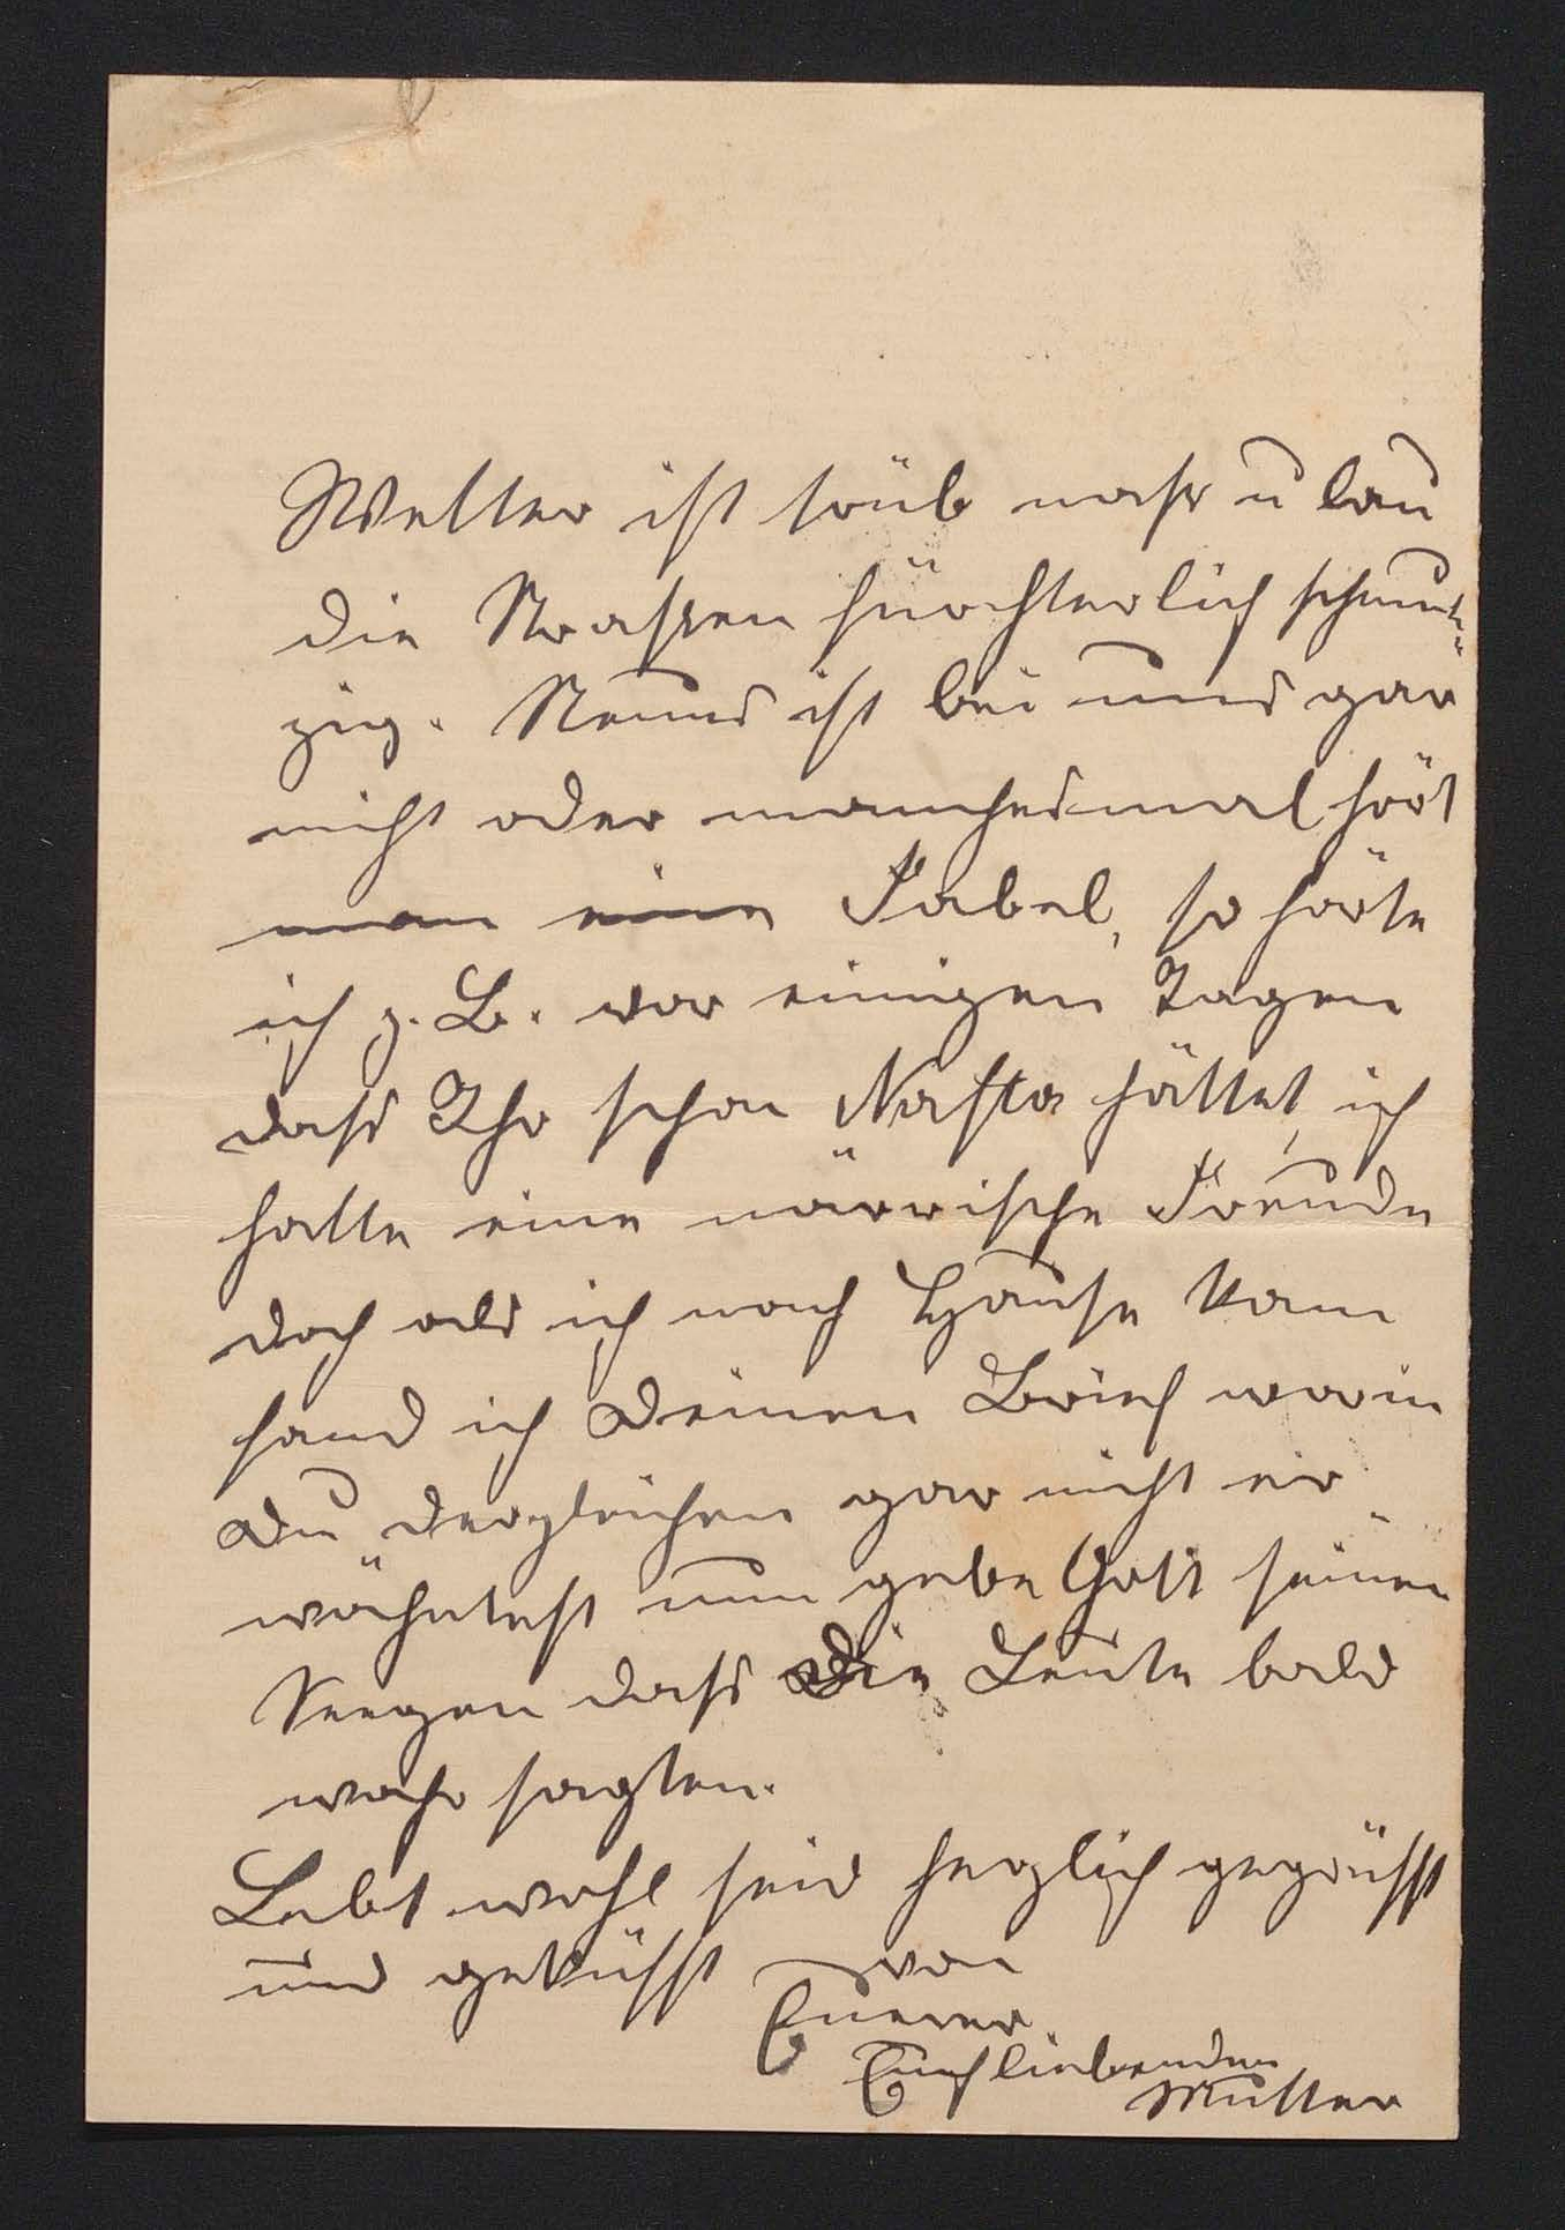 Wetter ist trüb nass u lau
die Strassen fürchterlich schmut-
zig. Neues ist bei uns gar
nicht oder manchesmal hört
man eine Fabel, so hörte
ich z. B. vor einigen Tagen
dass Ihr schon Nafta hättet, ich
hatte eine närrische Freude
doch als ich nach Hause kam
fand ich Deinen Brief worin
Du dergleichen gar nicht er-
wähntest nun gebe Gott seinen
Seegen dass die Leute bald
wahr sagten.
Lebt wohl seid herzlich gegrüsst
und geküsst von
Euerer
Euch liebenden
Mutter